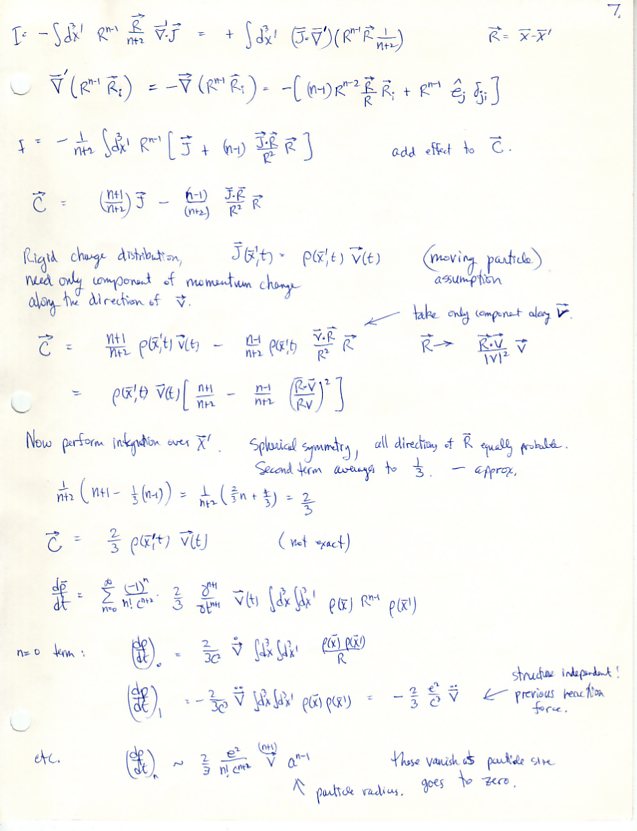 7.
I = -∫d³x' Rⁿ⁻¹ R⃗/n+2 ∇⃗'·J⃗ = + ∫d³x' (J⃗·∇⃗')(Rⁿ⁻¹R⃗ 1/n+2) R⃗ = x⃗-x⃗'
∇⃗'(Rⁿ⁻¹ R⃗ᵢ) = -∇⃗(Rⁿ⁻¹ R⃗ᵢ) = -[(n-1)Rⁿ⁻² R⃗/R R⃗ᵢ + Rⁿ⁻¹ ê_j δ_ji]
I = - 1/n+2 ∫d³x' Rⁿ⁻¹ [ J⃗ + (n-1) J⃗·R⃗/R² R⃗ ] add effect to C⃗.
C⃗ = (n+1/n+2) J⃗ - (n-1)/(n+2) J⃗·R⃗/R² R⃗
Rigid charge distribution, J⃗(x⃗',t) = ρ(x⃗',t) v⃗(t) (moving particle)
need only component of momentum change assumption
along the direction of v⃗.
take only component along v⃗.
C⃗ = n+1/n+2 ρ(x⃗',t) v⃗(t) - n-1/n+2 ρ(x⃗',t) v⃗·R⃗/R² R⃗ R⃗ → R⃗·v⃗/|v|² v⃗
= ρ(x⃗',t) v⃗(t) [ n+1/n+2 - n-1/n+2 (R⃗·v⃗/Rv)² ]
Now perform integration over x⃗'. Spherical symmetry, all directions of R⃗ equally probable.
Second term averages to 1/3. - approx.
1/n+2 (n+1 - 1/3(n-1)) = 1/n+2 (2/3 n + 4/3) = 2/3
C⃗ = 2/3 ρ(x⃗',t) v⃗(t) (not exact)
dp⃗/dt = ∑_{n=0}^∞ (-1)ⁿ/n! cⁿ⁺² · 2/3 ∂ⁿ⁺¹/∂tⁿ⁺¹ v⃗(t) ∫d³x∫d³x' ρ(x⃗) Rⁿ⁻¹ ρ(x⃗')
n=0 term: (dp⃗/dt)₀ = 2/3c² v⃗̇ ∫d³x∫d³x' ρ(x⃗)ρ(x⃗')/R
structure independent!
(dp⃗/dt)₁ = - 2/3c³ v⃗̈ ∫d³x∫d³x' ρ(x⃗)ρ(x') = - 2/3 e²/c³ v⃗̈ ← previous reaction
force.
etc. (dp⃗/dt)ₙ ~ 2/3 e²/n! cⁿ⁺² v⃗⁽ⁿ⁺¹⁾ aⁿ⁻¹ these vanish as particle size
particle radius. goes to zero.